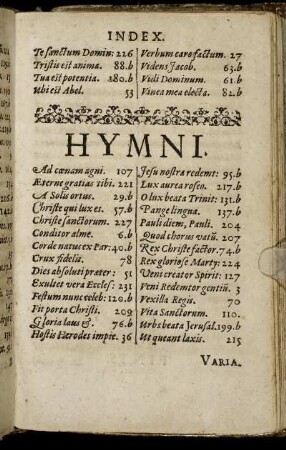 INDEX.
Te sanctum Domin: 226
Tristis est anima. 88.b
Tua est potentia. 180.b
Ubi est Abel. 53
Verbum caro factum. 27
Videns Jacob. 63.b
Vidi Dominum. 61.b
Vinea mea electa. 82.b
HYMNI.
Ad cœnam agni. 107
Æterne gratias tibi. 221
A Solis ortus. 29.b
Christe qui lux et. 57.b
Christe sanctorum. 227
Conditor alme. 6.b
Corde natus ex Par: 40.b
Crux fidelis. 78
Dies absoluti præter: 51
Exultet vera Eccles: 231
Festum nunc celeb: 120.b
Fit porta Christi. 209
Gloria laus &. 76.b
Hostis Herodes impie. 36
Jesu nostra redemt: 95.b
Lux aurea rosea. 217.b
O lux beata Trinit: 131.b
Pange lingua. 137.b
Pauli diem, Pauli. 204
Quod chorus vatū. 207.b
Rex Christe factor. 74.b
Rex gloriose Marty: 224
Veni creator Spirit: 127
Veni Redemtor gentiū. 3
Vexilla Regis. 70
Vita Sanctorum. 110.
Urbs beata Jerusal. 199.b
Ut queant laxis. 215
VARIA.